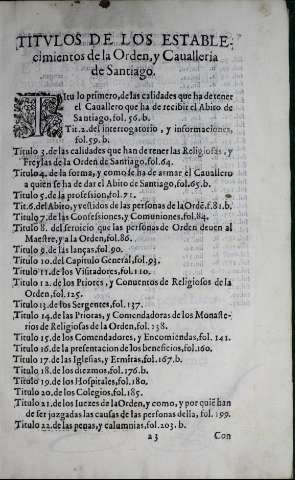 TITVLOS DE LOS ESTABLE-
cimientos de la Orden, y Caualleria
de Santiago.
TItulo primero, de las calidades que ha de tener
el Cauallero que ha de recibir el Abito de
Santiago, fol. 56. b.
Tit. 2. del interrogatorio, y informaciones,
fol. 59. b.
Titulo 3. de las calidades que han de tener las Religiosas, y
Freylas de la Orden de Santiago. fol. 64.
Titulo 4. de la forma, y como se ha de armar el Cauallero
a quien se ha de dar el Abito de Santiago, fol. 65. b.
Titulo 5. de la profession, fol. 71.
Tit. 6. del Abito, y vestidos de las personas de la Ordē. f. 81. b.
Titulo 7. de las Confessiones, y Comuniones. fol. 84.
Titulo 8. del seruicio que las personas de Orden deuen al
Maestre, y a la Orden, fol. 86.
Titulo 9. de las lanças, fol. 90.
Titulo 10. del Capitulo General, fol. 93.
Titulo 11. de los Visitadores, fol. 110.
Titulo 12. de los Priores, y Conuentos de Religiosos de la
Orden, fol. 125.
Titulo 13. de los Sergentes, fol. 137.
Titulo 14. de las Prioras, y Comendadoras de los Monaste-
rios de Religiosas de la Orden, fol. 138.
Titulo 15. de los Comendadores, y Encomiendas, fol. 141.
Titulo 16. de la presentacion de los beneficios, fol. 160.
Titulo 17. de las Iglesias, y Ermitas, fol. 167. b.
Titulo 18. de los diezmos, fol. 176. b.
Titulo 19. de los Hospitales, fol. 180.
Titulo 20. de los Colegios, fol. 185.
Titulo 21. de los Iuezes de la Orden, y como, y por quiē han
de ser juzgadas las causas de las personas della, fol. 199.
Titulo 22. de las penas, y calumnias, fol. 203. b.
a3 Con